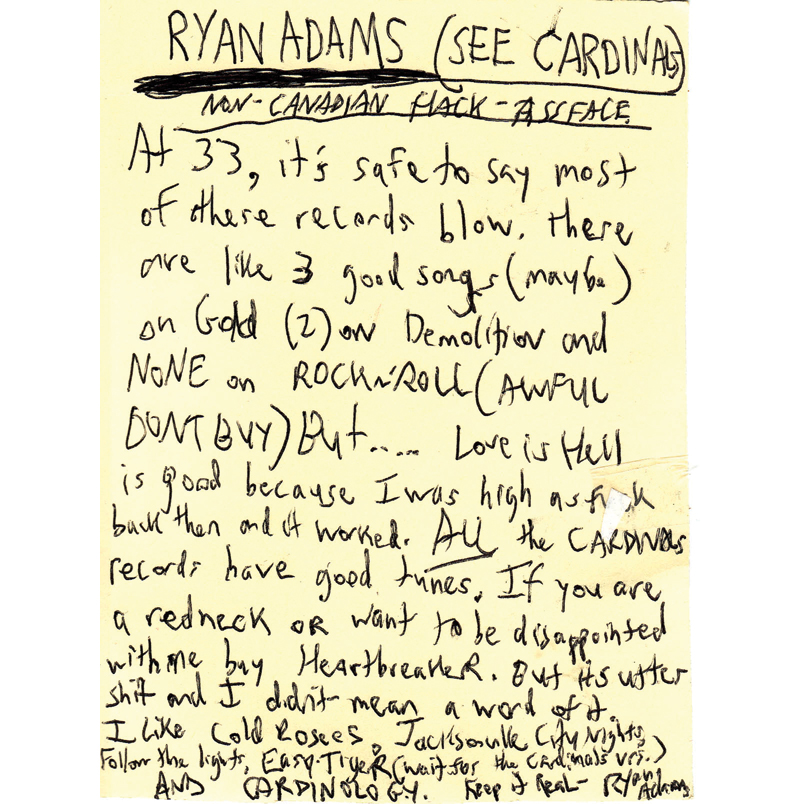 RYAN ADAMS (SEE CARDINALS)
NON-CANADIAN HACK-ASSFACE
At 33, it's safe to say most
of these records blow. there
are like 3 good songs (maybe)
on Gold (2) on Demolition and
NONE on ROCK N' ROLL (AWFUL
DONT BUY) But..... Love is Hell
is good because I was high as fuck
back then and it worked. All the CARDINALS
records have good tunes. If you are
a redneck OR want to be disappointed
with me buy HeartbreakeR. But its utter
shit and I didnt mean a word of it.
I like Cold Rosees, Jacksonville City Nights,
Follow the lights, Easy-TigeR (wait for the Cardinals vrs.)
AND CARDINOLOGY. Keep it Real- Ryan
Adams